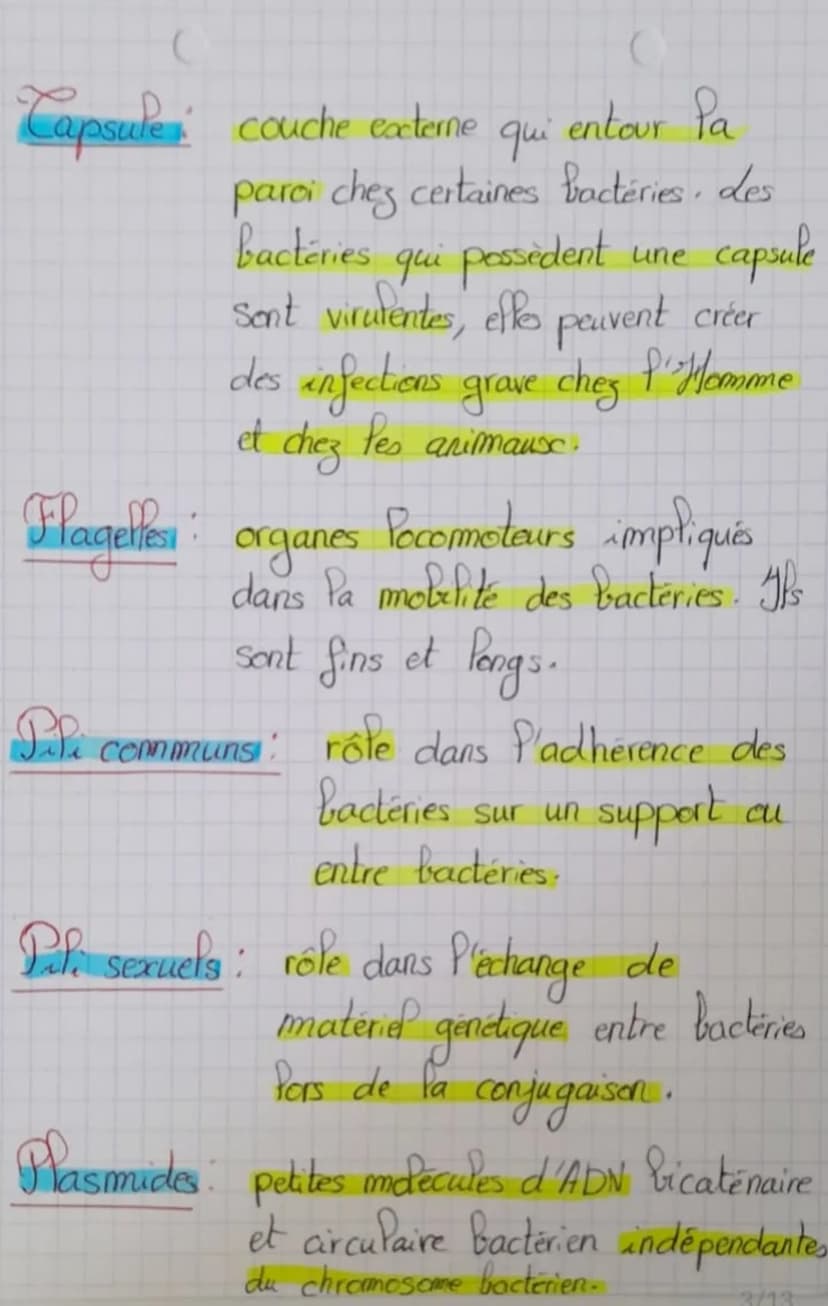 Capsule : couche externe qui entour la
paroi chez certaines bactéries. des
bactéries qui possèdent une capsule
sont virulentes, elles peuvent créer
des infections grave chez l'Homme
et chez les animaux.
Flagelles : organes locomoteurs impliqués
dans la mobilité des bactéries. Ils
sont fins et longs.
Pili communs : rôle dans l'adhérence des
bactéries sur un support ou
entre bactéries.
Pili sexuels : rôle dans l'échange de
matériel génétique entre bactéries
lors de la conjugaison.
Plasmides : petites molécules d'ADN bicaténaire
et circulaire bactérien indépendantes
du chromosome bactérien.
3/13